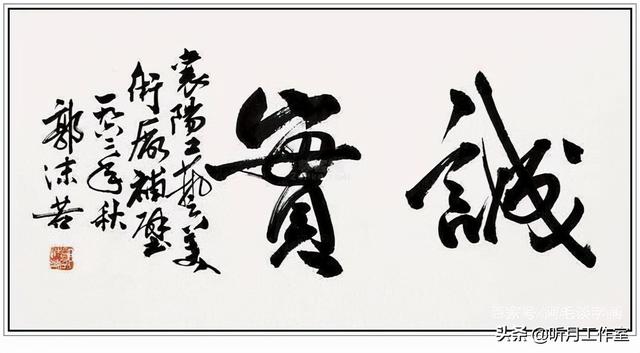 誠實
襄陽工藝美
術廠補壁
一九六二年秋
郭沫若
百家号/阿毛谈字画
头条 @听月工作室